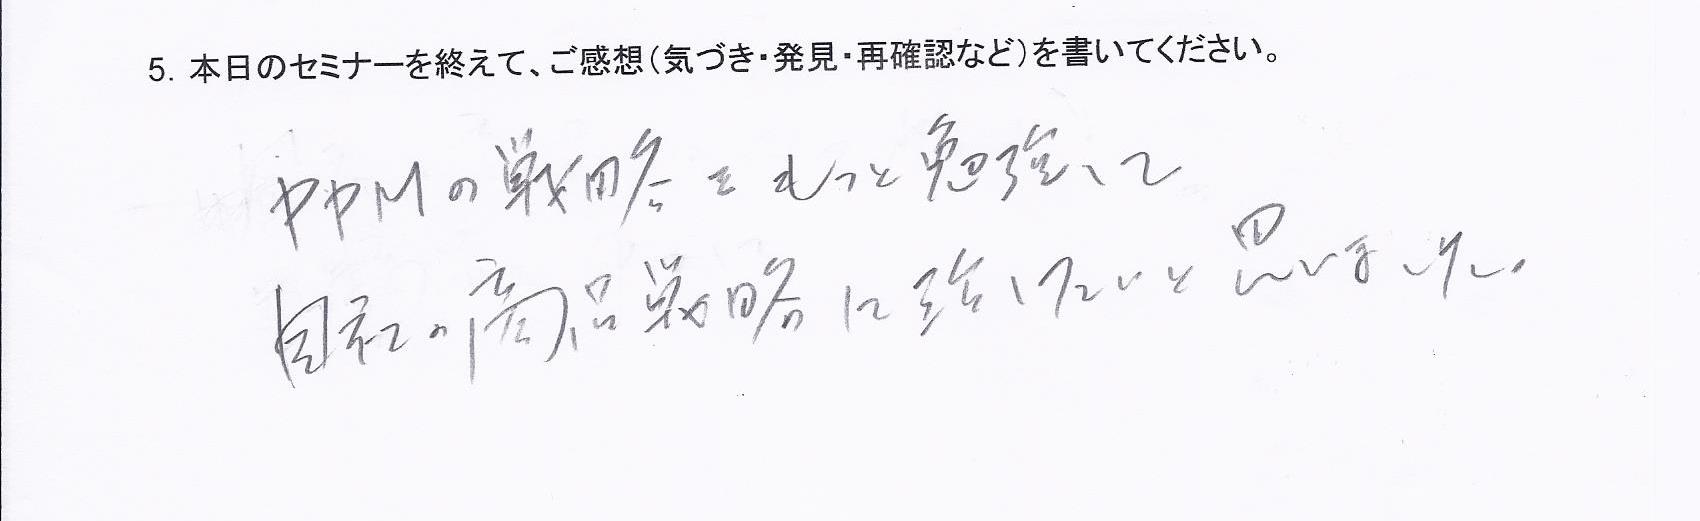 5. 本日のセミナーを終えて、ご感想（気づき・発見・再確認など）を書いてください。
PPMの戦略をもっと勉強して
自社の商品戦略に たいと思いました。